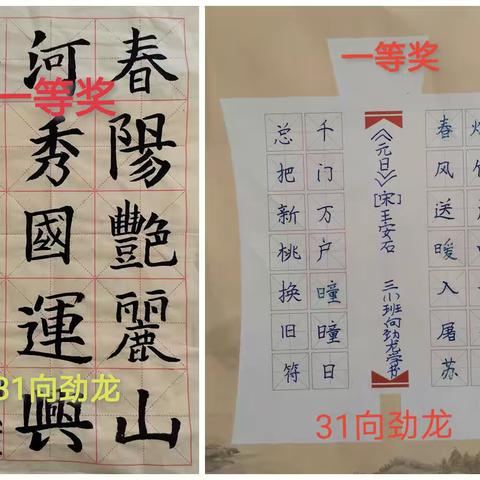 一等奖
春陽豔麗山
河秀國運興
31向劲龙
一等奖
春风送暖入屠苏
《元日》[宋]王安石 三(1)班向劲龙学书
千门万户曈曈日
总把新桃换旧符
31向劲龙